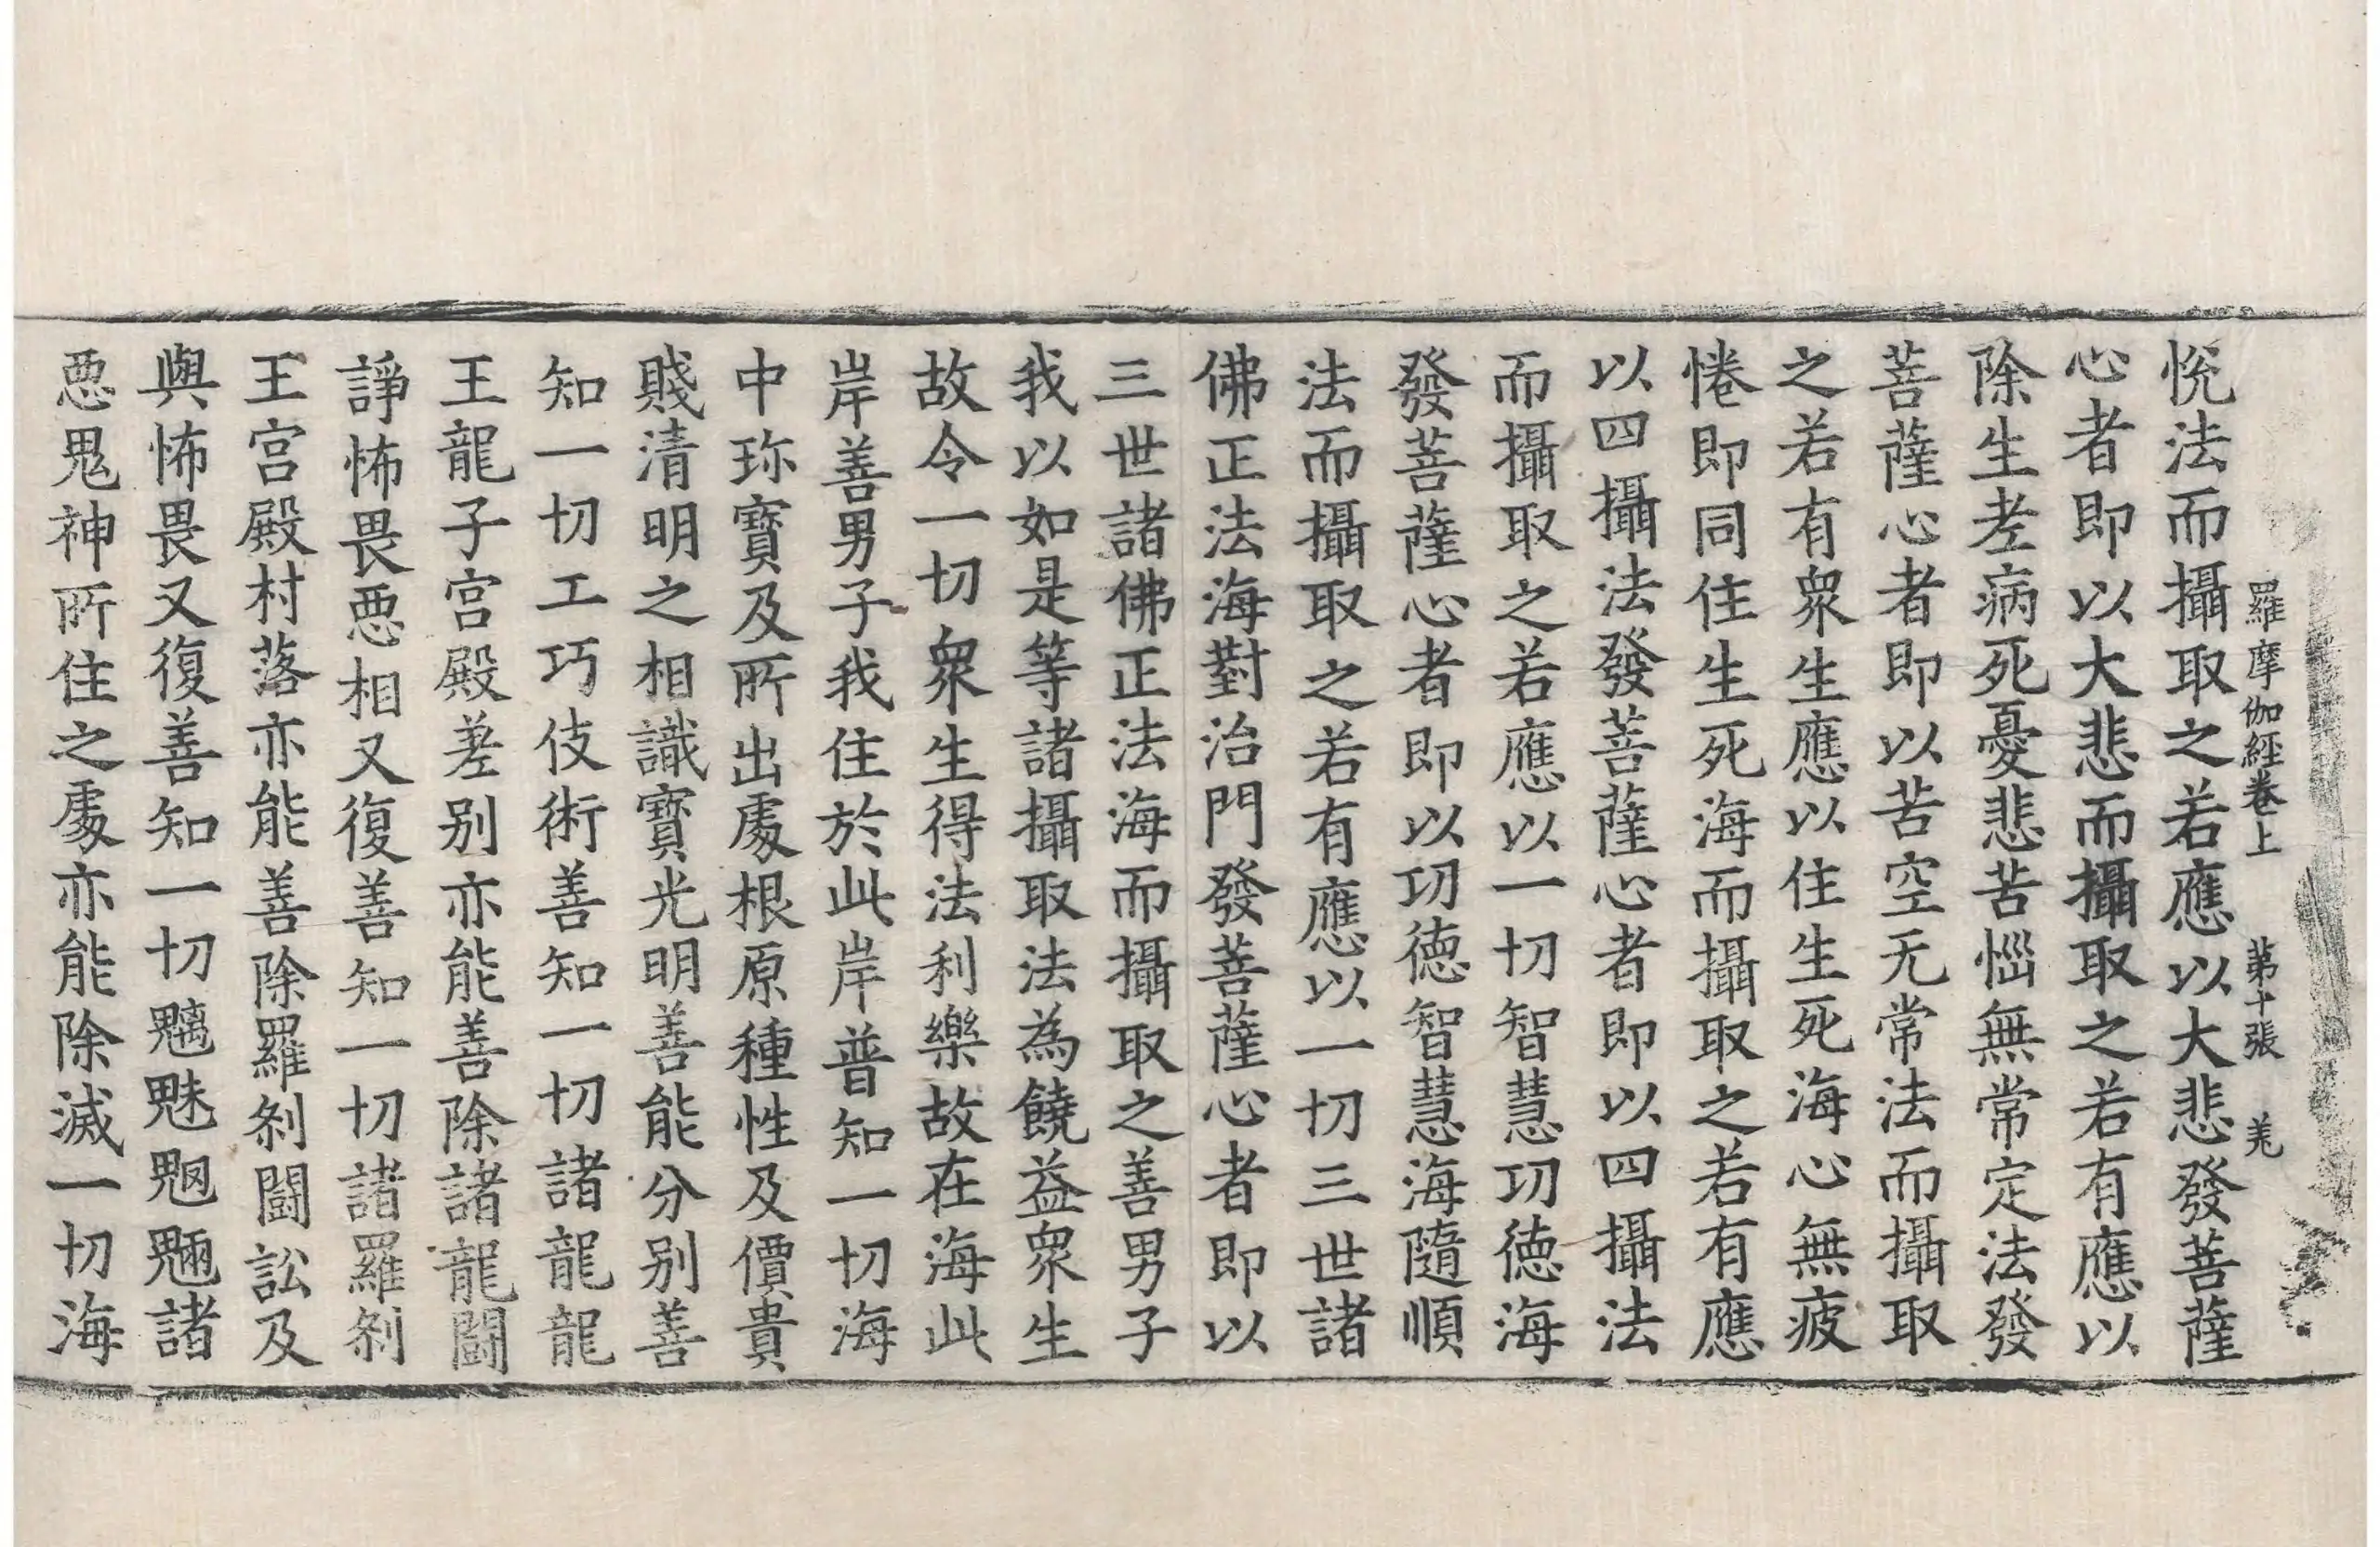 羅摩伽經卷上 苐十張 羗
恱法而攝取之若應以大悲發菩薩
心者即以大悲而攝取之若有應以
除生老病死憂悲苦惱無常定法發
菩薩心者即以苦空无常法而攝取
之若有衆生應以住生死海心無疲
惓即同住生死海而攝取之若有應
以四攝法發菩薩心者即以四攝法
而攝取之若應以一切智慧功德海
發菩薩心者即以功德智慧海隨順
法而攝取之若有應以一切三世諸
佛正法海對治門發菩薩心者即以
三世諸佛正法海而攝取之善男子
我以如是等諸攝取法為饒益衆生
故令一切衆生得法利樂故在海此
岸善男子我住於此岸普知一切海
中珎寶及所出處根原種性及價貴
賤清明之相識寶光明善能分別善
知一切工巧伎術善知一切諸龍龍
王龍子宮殿差別亦能善除諸龍鬪
諍怖畏惡相又復善知一切諸羅刹
王宮殿村落亦能善除羅刹鬪訟及
與怖畏又復善知一切魑魅魍魎諸
惡鬼神所住之處亦能除滅一切海